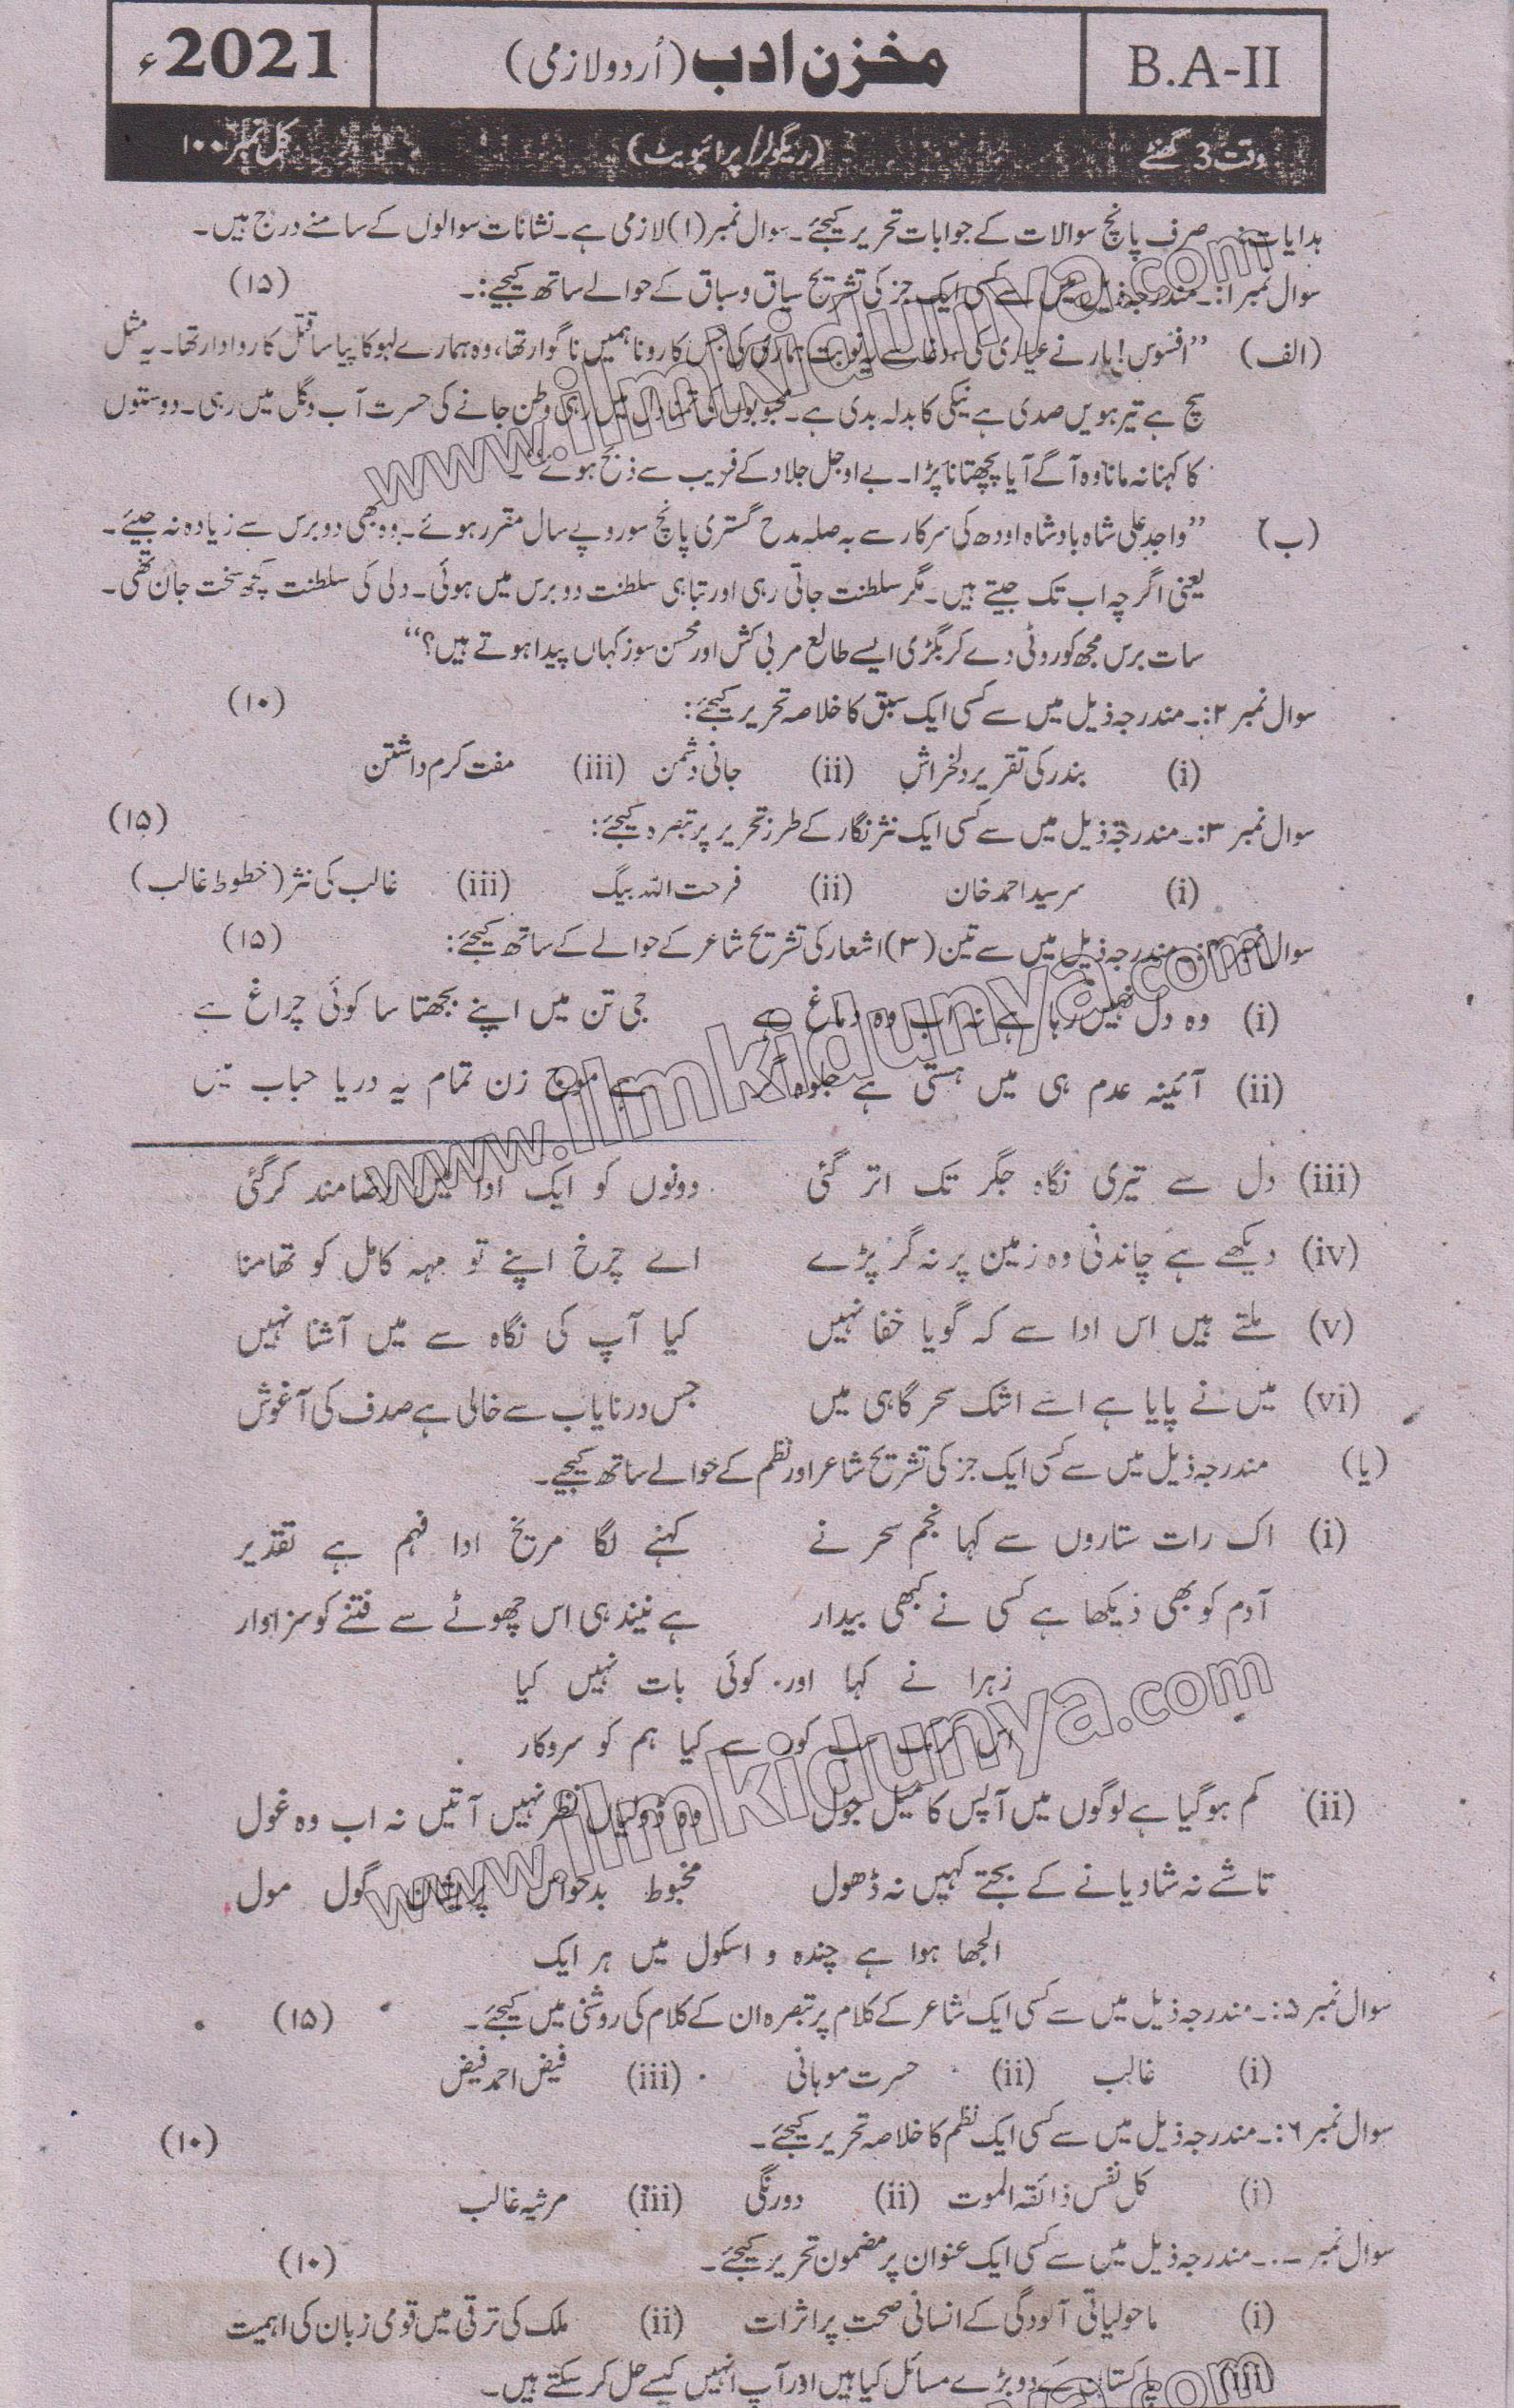 B.A-II مخزن ادب (اُردو لازمی) 2021ء
وقت 3 گھنٹے (ریگولر/پرائیویٹ) کل نمبر ۱۰۰
ہدایات: صرف پانچ سوالات کے جوابات تحریر کیجئے۔ سوال نمبر (۱) لازمی ہے۔ نشانات سوالوں کے سامنے درج ہیں۔
سوال نمبر ۱:۔ مندرجہ ذیل میں سے کسی ایک جز کی تشریح سیاق و سباق کے حوالے ساتھ کیجیے:۔ (۱۵)
(الف) ”افسوس! یار نے عیاری کی دغا سے یہ نوبت ہماری کی جس کا رونا ہمیں ناگوار تھا، وہ ہمارے لہو کا پیاسا قتل کا روادار تھا۔ یہ مثل
سچ ہے تیرہویں صدی ہے نیکی کا بدلہ بدی ہے۔ محبوبوں کی تمنا دل میں رہی وطن جانے کی حسرت آب و گل میں رہی۔ دوستوں
کا کہنا نہ مانا وہ آگے آیا پچھتانا پڑا۔ بے اجل جلاد کے فریب سے ذبح ہوئے“۔
(ب) ”واجد علی شاہ بادشاہ اودھ کی سرکار سے بہ صلہ مدح گستری پانچ سو روپے سال مقرر ہوئے۔ وہ بھی دو برس سے زیادہ نہ جیئے۔
یعنی اگرچہ اب تک جیتے ہیں۔ مگر سلطنت جاتی رہی اور تباہی سلطنت دو برس میں ہوئی۔ دلی کی سلطنت کچھ سخت جان تھی۔
سات برس مجھ کو روٹی دے کر بگڑی ایسے طالع مربی کش اور محسن سوز کہاں پیدا ہوتے ہیں؟“
سوال نمبر ۲:۔ مندرجہ ذیل میں سے کسی ایک سبق کا خلاصہ تحریر کیجئے: (۱۰)
(i) بندر کی تقریر دلخراش (ii) جانی دشمن (iii) مفت کرم داشتن
سوال نمبر ۳:۔ مندرجہ ذیل میں سے کسی ایک نثر نگار کے طرز تحریر پر تبصرہ کیجئے: (۱۵)
(i) سر سید احمد خان (ii) فرحت اللہ بیگ (iii) غالب کی نثر (خطوط غالب)
سوال نمبر مندرجہ ذیل میں سے تین (۳) اشعار کی تشریح شاعر کے حوالے کے ساتھ کیجئے: (۱۵)
(i) وہ دل نہیں رہا ہے نہ اب وہ دماغ ہے جی تن میں اپنے بجھتا سا کوئی چراغ ہے
(ii) آئینہ عدم ہی میں ہستی ہے جلوہ گر ہے موج زن تمام یہ دریا حباب میں
(iii) دل سے تیری نگاہ جگر تک اتر گئی دونوں کو ایک ادا میں رضامند کر گئی
(iv) دیکھے ہے چاندنی وہ زمین پر نہ گر پڑے اے چرخ اپنے تو مہہ کامل کو تھامنا
(v) ملتے ہیں اس ادا سے کہ گویا خفا نہیں کیا آپ کی نگاہ سے میں آشنا نہیں
(vi) میں نے پایا ہے اسے اشک سحر گاہی میں جس در نایاب سے خالی ہے صدف کی آغوش
(یا) مندرجہ ذیل میں سے کسی ایک جز کی تشریح شاعر اور نظم کے حوالے ساتھ کیجیے۔
(i) اک رات ستاروں سے کہا نجم سحر نے کہنے لگا مریخ ادا فہم ہے تقدیر
آدم کو بھی دیکھا ہے کسی نے کبھی بیدار ہے نیند ہی اس چھوٹے سے فتنے کو سزاوار
زہرا نے کہا اور کوئی بات نہیں کیا
اس کرمک شب کور سے کیا ہم کو سروکار
(ii) کم ہو گیا ہے لوگوں میں آپس کا میل جول وہ ڈولیاں نظر نہیں آتیں نہ اب وہ غول
تاشے نہ شادیانے کے بجتے کہیں نہ ڈھول مخبوط بدحواس پریشان گول مول
الجھا ہوا ہے چندہ و اسکول میں ہر ایک
سوال نمبر ۵:۔ مندرجہ ذیل میں سے کسی ایک شاعر کے کلام پر تبصرہ ان کے کلام کی روشنی میں کیجئے۔ (۱۵)
(i) غالب (ii) حسرت موہانی (iii) فیض احمد فیض
سوال نمبر ۶:۔ مندرجہ ذیل میں سے کسی ایک نظم کا خلاصہ تحریر کیجئے۔ (۱۰)
(i) کل نفس ذائقہ الموت (ii) دورنگی (iii) مرثیہ غالب
سوال نمبر مندرجہ ذیل میں سے کسی ایک عنوان پر مضمون تحریر کیجئے۔ (۱۰)
(i) ماحولیاتی آلودگی کے انسانی صحت پر اثرات (ii) ملک کی ترقی میں قومی زبان کی اہمیت
(iii) پاکستان کے دو بڑے مسائل کیا ہیں اور آپ انہیں کیسے حل کر سکتے ہیں۔
www.ilmkidunya.com
www.ilmkidunya.com
www.ilmkidunya.com